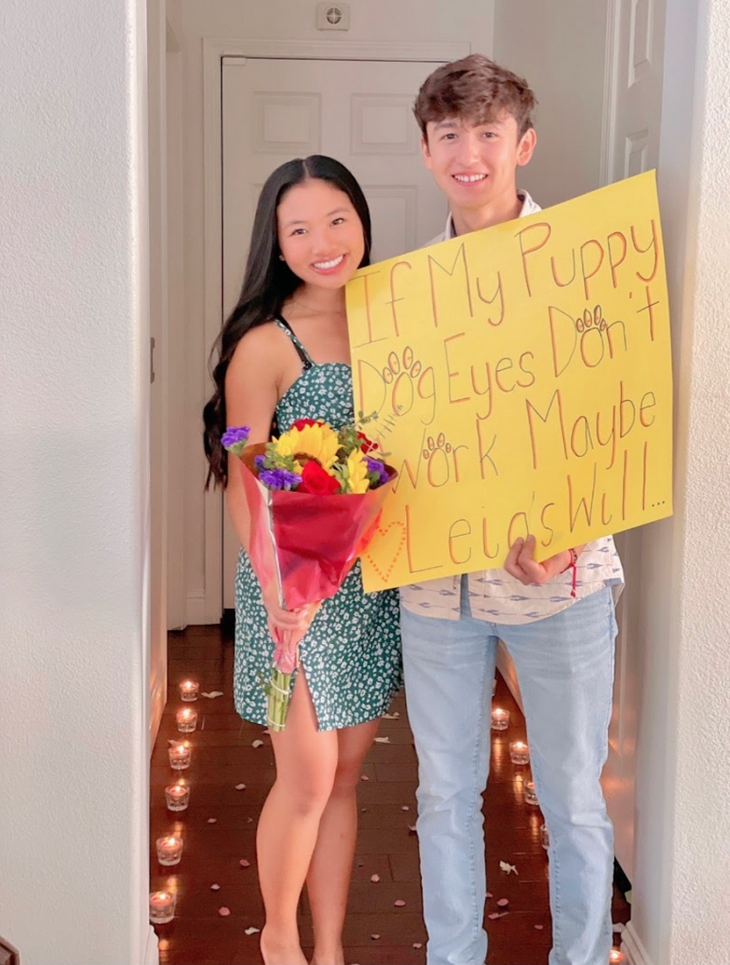 If My Puppy
Dog Eyes Don't
Work Maybe
Leia's Will...